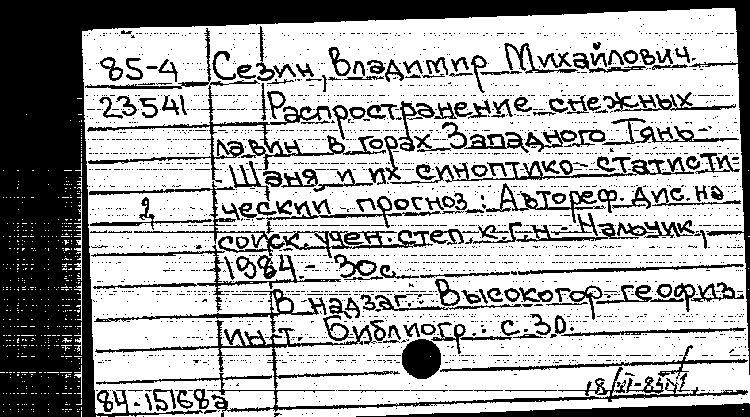 85-4 Сезин, Владимир Михайлович.
23541 Распространение снежных
лавин в горах Западного Тянь-
-Шаня и их синоптико-статисти-
ческий прогноз: Автореф. дис. на
соиск. учен. степ. к.г.н. - Нальчик,
1984. - 30с.
В надзаг.: Высокогор. геофиз.
ин-т. Библиогр.: с.30.
84-15168а